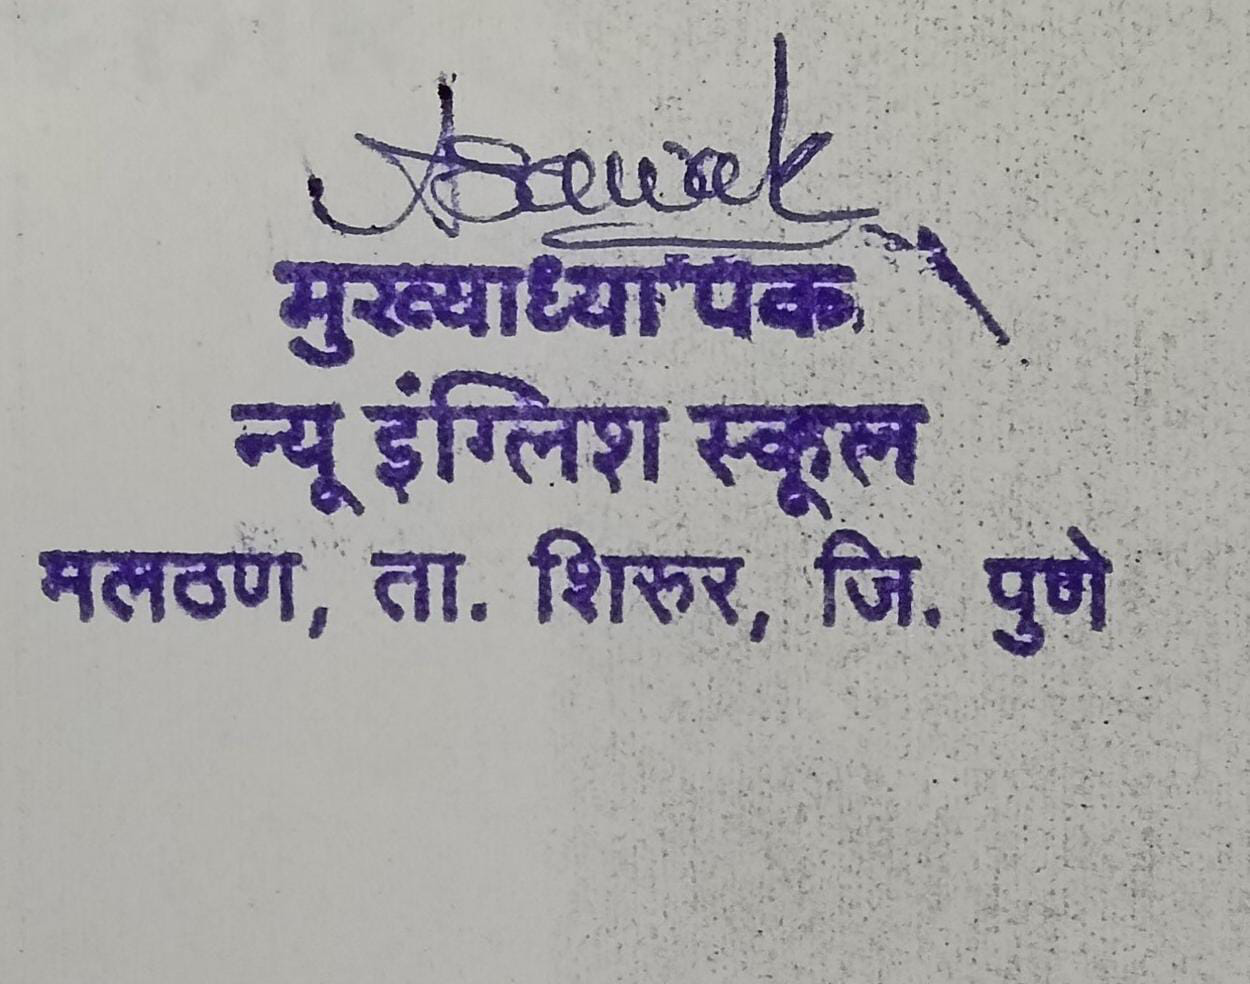 मुख्याध्यापक
न्यू इंग्लिश स्कूल
मलठण, ता. शिरुर, जि. पुणे